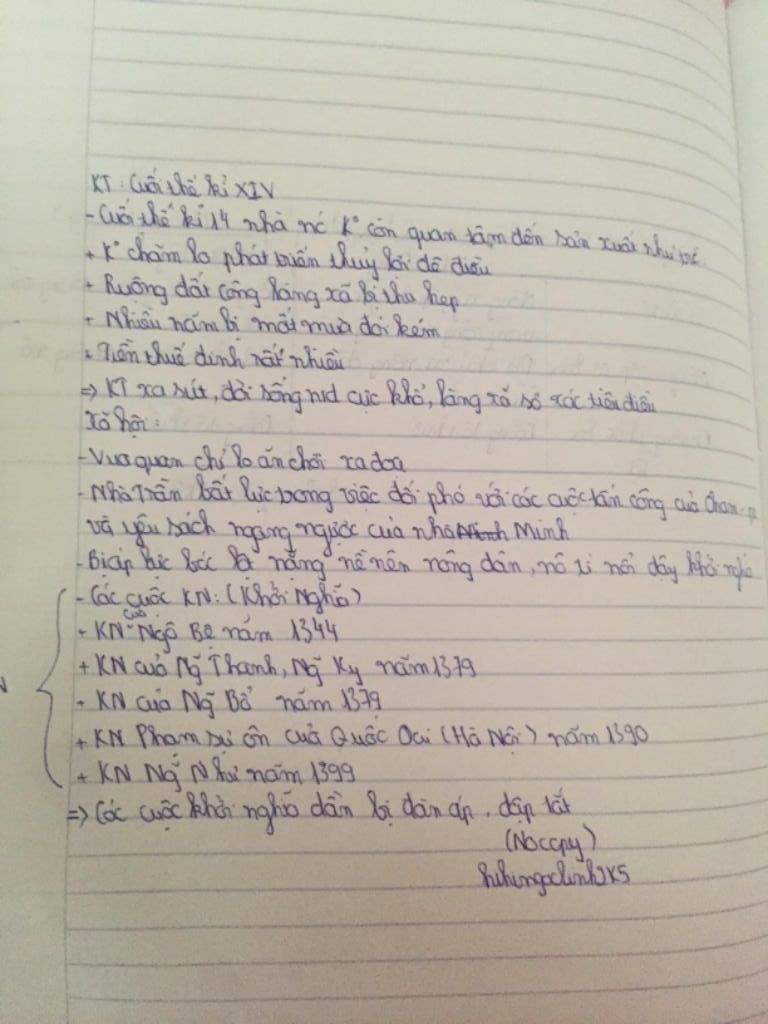 KT: Cuối thế kỉ XIV
- Cuối thế kỉ 14 nhà nc K° còn quan tâm đến sản xuất như trc
+ K° chăm lo phát triển thủy lợi đê điều
+ Ruộng đất công làng xã bị thu hẹp
+ Nhiều năm bị mất mùa đói kém
+ Tiền thuế đinh rất nhiều
=> KT xa sút, đời sống nd cực khổ, làng xã sơ xác tiêu điều
Xã hội:
- Vua quan chỉ lo ăn chơi xa đoạ
- Nhà Trần bất lực trong việc đối phó với các cuộc tấn công của Cham-pa
và yêu sách ngang ngược của nhà Minh
- Bị áp bức bóc lột nặng nề nên nông dân, nô tì nổi dậy khởi nghĩa
- Các cuộc KN: (Khởi Nghĩa)
+ KN của Ngô Bệ năm 1344
+ KN của Ng~ Thanh, Ng~ Kỵ năm 1379
+ KN của Ng~ Bổ năm 1379
+ KN Phạm Sư Ôn của Quốc Oai (Hà Nội) năm 1390
+ KN Ng~ Như năm 1399
=> Các cuộc khởi nghĩa dần bị đàn áp, dập tắt
(Noccpy)
hihingoclinh2K5